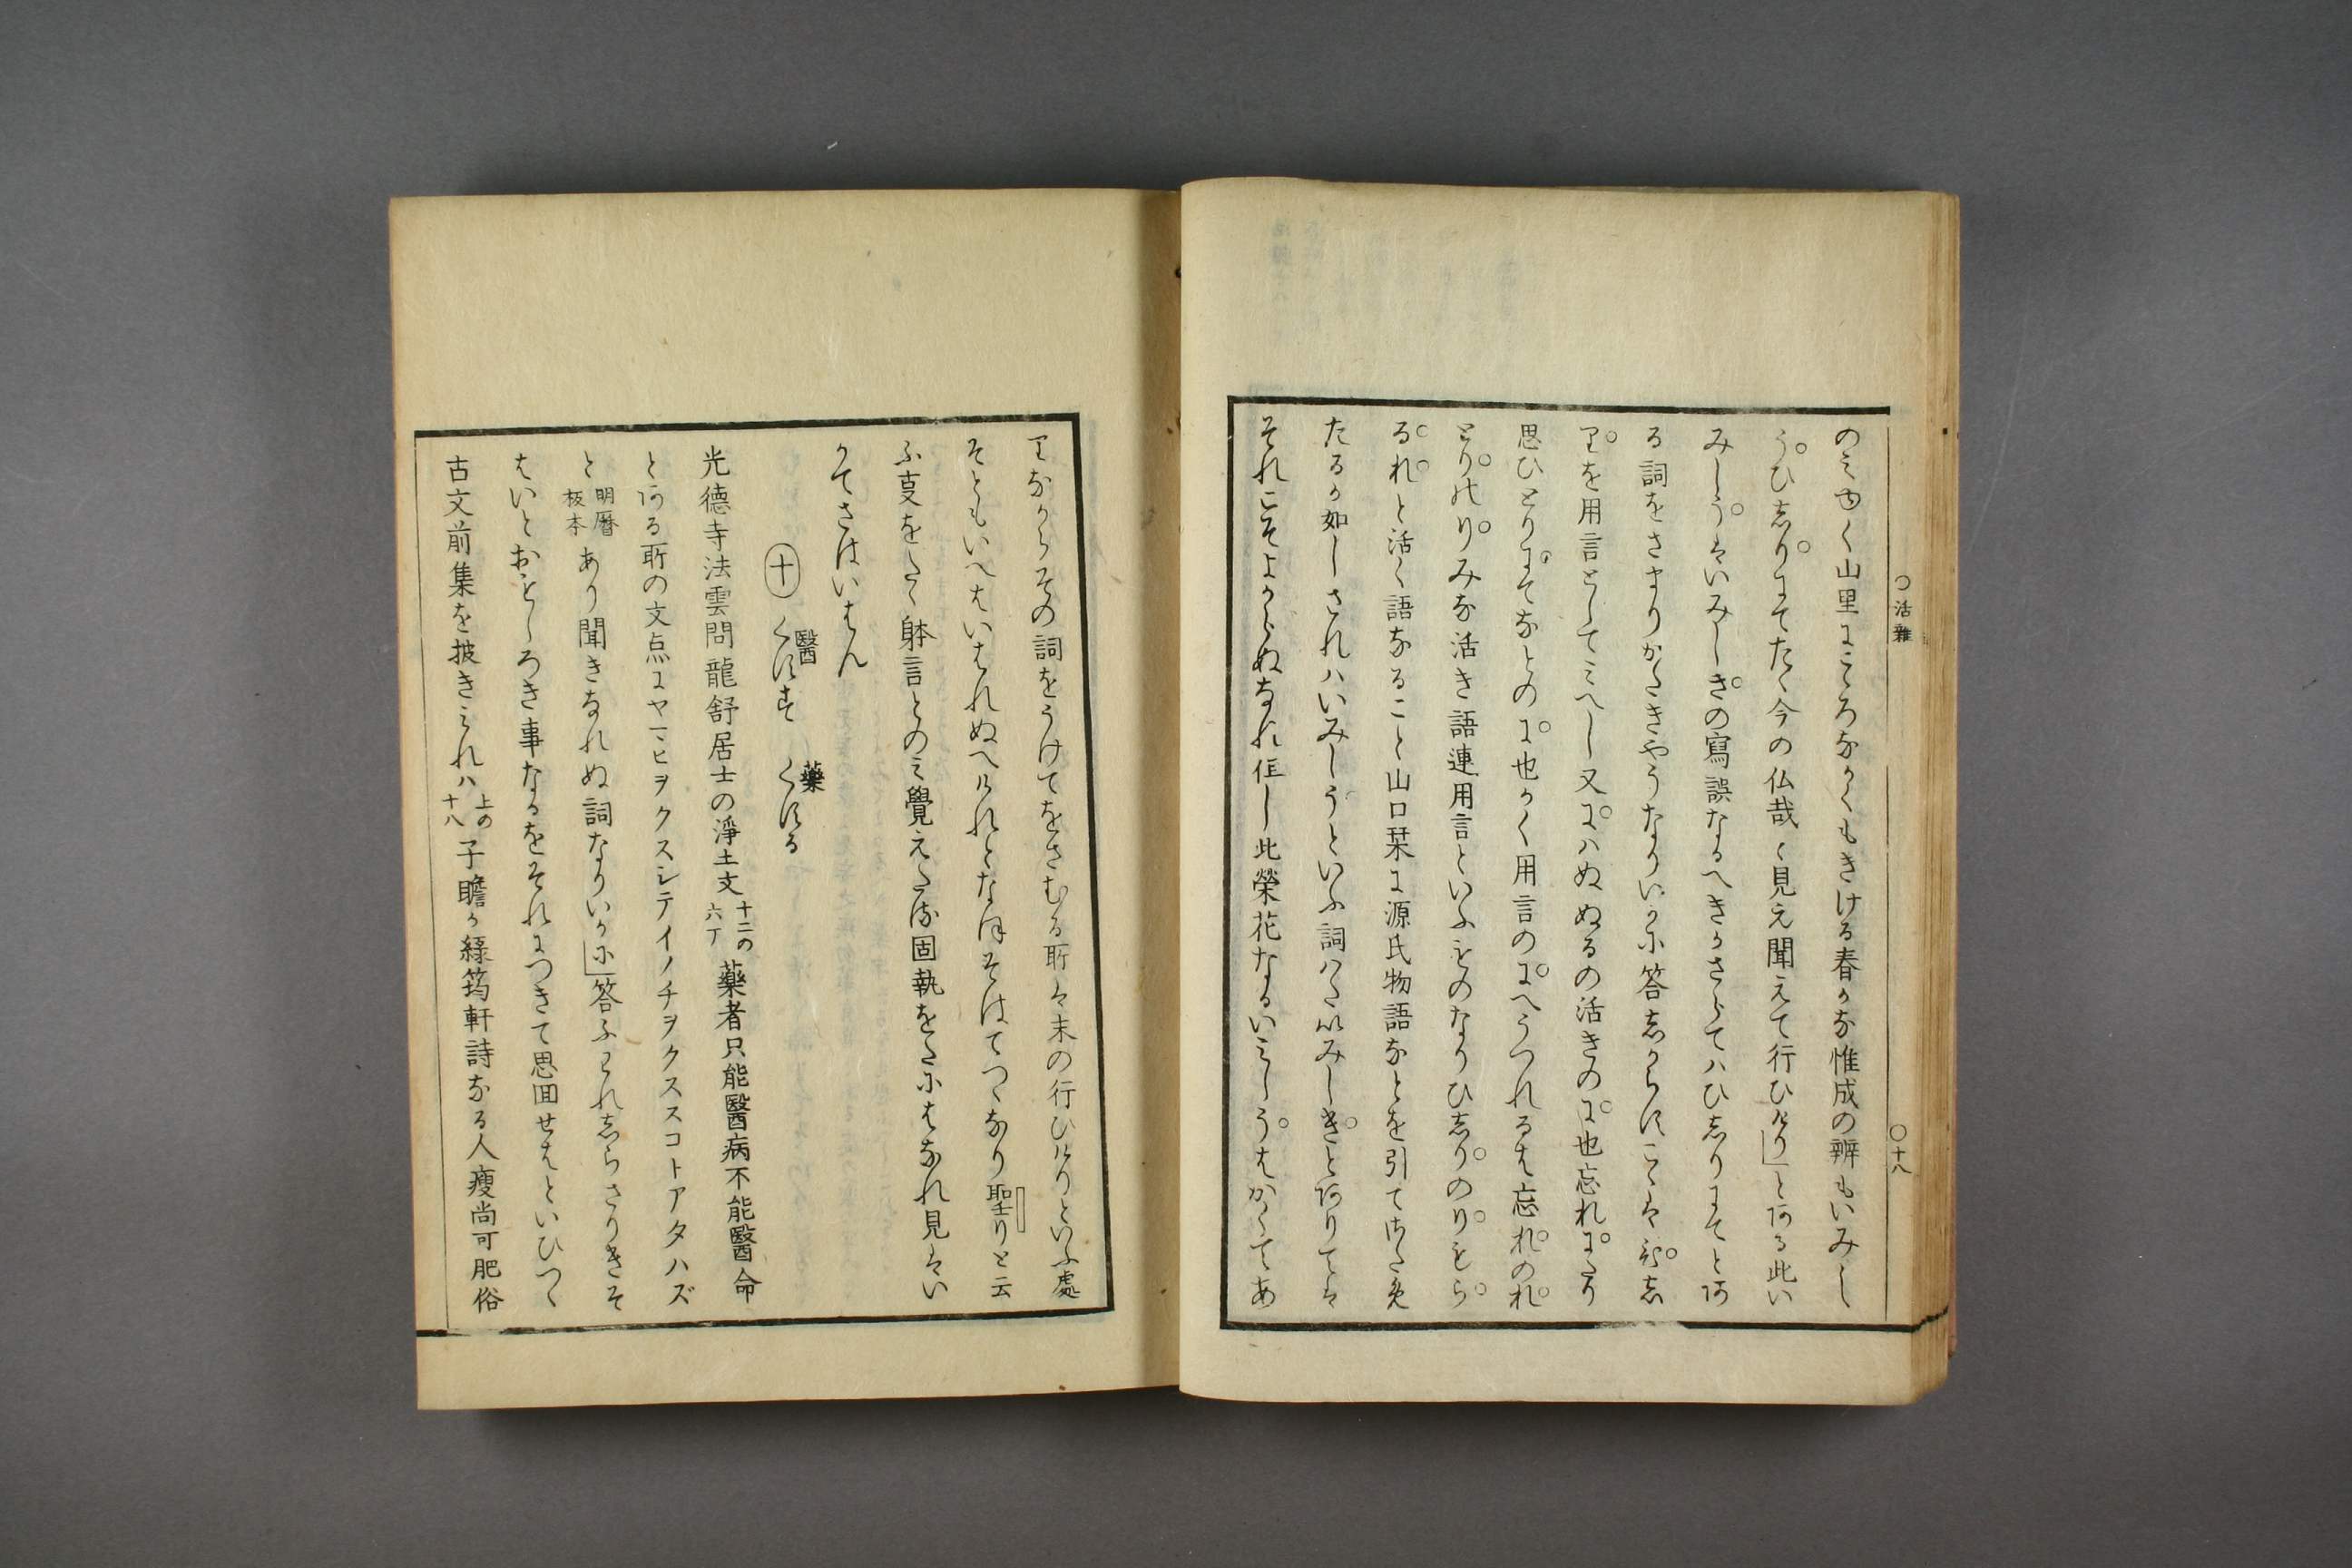 ○活雜
○十八
のミゆく山里にこゝろなかくもきける春かな惟成の辨もいみし
うひしりにてたゝ今の仏哉と見え聞えて行ひけりとある此い
みしうはいみしきの寫誤なるへきかさらてはひしりにてとあ
る詞をさまりかたきやうなりいかに答しからすこゝは
りを用言としてミへし又にハぬぬるの活きのに也忘れにたり
思ひとりにてなとのに也かく用言のにへうつれるは忘れのれ
とりのりみな活き語連用言といふものなりひしりのりもら
るれと活く語なること山口栞に源氏物語なとを引て
たるか如しされハいみしうといふ詞ハたいみしきとありては
それこそよからぬなれ但し此榮花なるいミしうはかくてあ
りなからその詞をうけてをさむる所は末の行ひけりといふ處
そともいへはいはれぬへけれとなほそはてつゝなり聖りと云
ふ亊をたゝ躰言とのミ覺えたる固執をたにはなれ見はい
かてさはいはん
十 醫くすす 藥くする
光德寺法雲問龍舒居士の淨土文十二の六丁藥者只能醫病不能醫命
とある所の文点にヤマヒヲクスシテイノチヲクススコトアタハズ
と明曆板本あり聞きなれぬ詞なりいかに答ふわれしらさりきそ
はいとおもしろき事なるをそれにつきて思囬せはといひつゝ
古文前集を披きミれハ上の十八子瞻か綠筠軒詩なる人瘦尚可肥俗